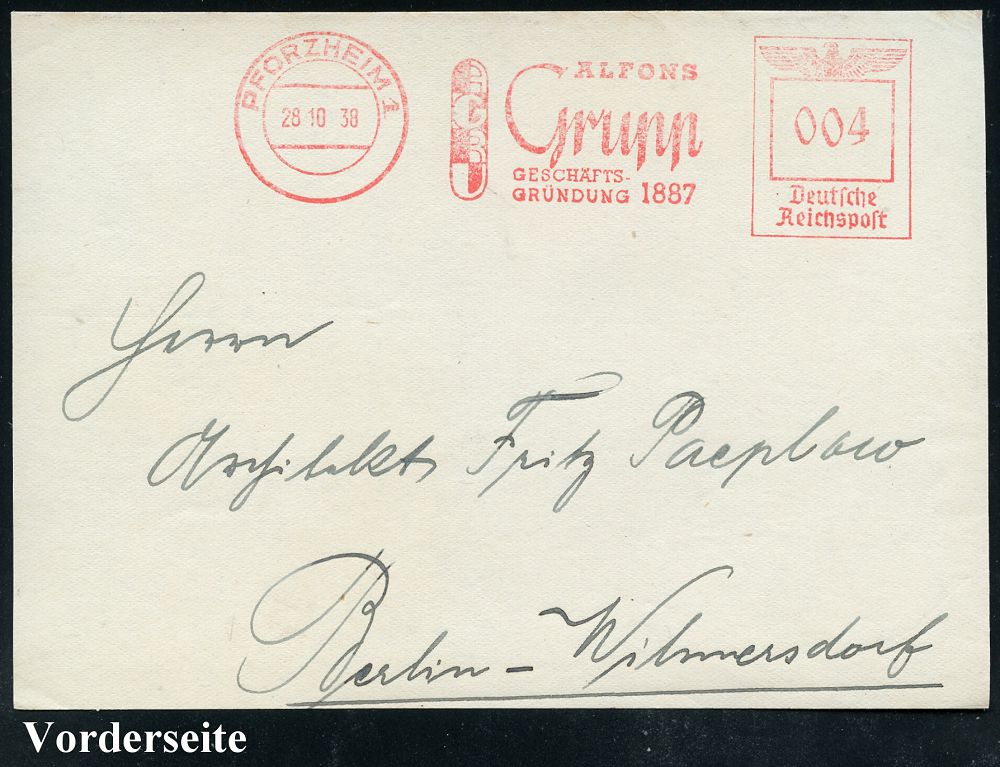 PFORZHEIM 1
28 10 38
ALFONS
Grupp
GESCHÄFTS-
GRÜNDUNG 1887
004
Deutsche
Reichspost
Herrn
Architekt Fritz Paeplow
Berlin - Wilmersdorf
Vorderseite